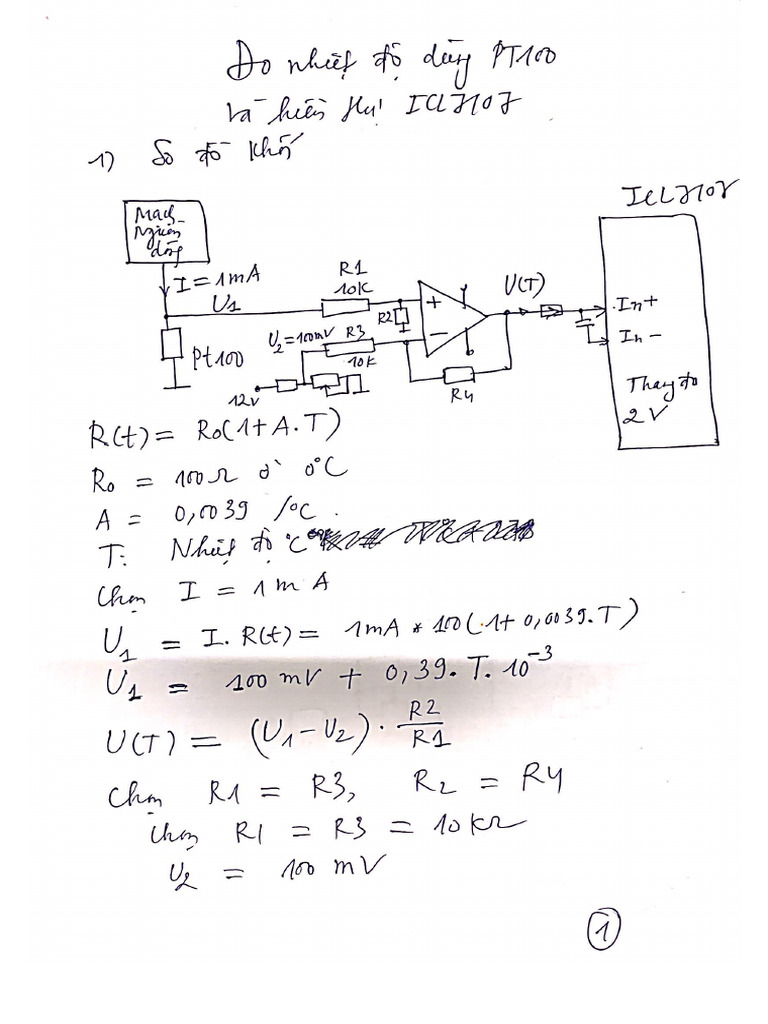 Đo nhiệt độ dùng PT100
và hiển thị ICL7107
1) Sơ đồ khối
ICL7107
Mạch
Nguồn
dòng
I = 1mA
U1
R1
10K
U(T)
In+
R2
+
U2=100mV
R3
10K
−
In −
Pt100
12V
R4
Thang đo
2V
R(t) = Ro(1+A.T)
Ro = 100Ω ở 0°C
A = 0,0039 /°C.
T: Nhiệt độ °C
Chọn I = 1mA
U1 = I. R(t) = 1mA * 100(1+0,0039.T)
U1 = 100 mV + 0,39. T. 10⁻³
U(T) = (U1 − U2) . R2/R1
Chọn R1 = R3, R2 = R4
Chọn R1 = R3 = 10KΩ
U2 = 100 mV
1